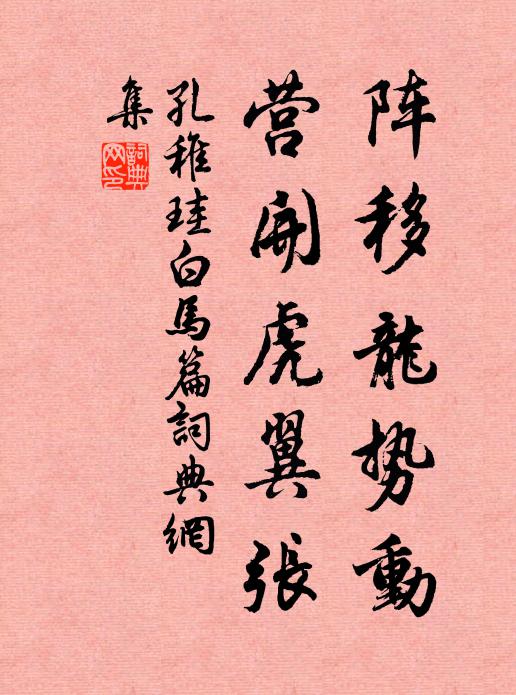 阵移龍势動
营開虎翼張
孔稚珪白馬篇詞典網
集
詞典
网印